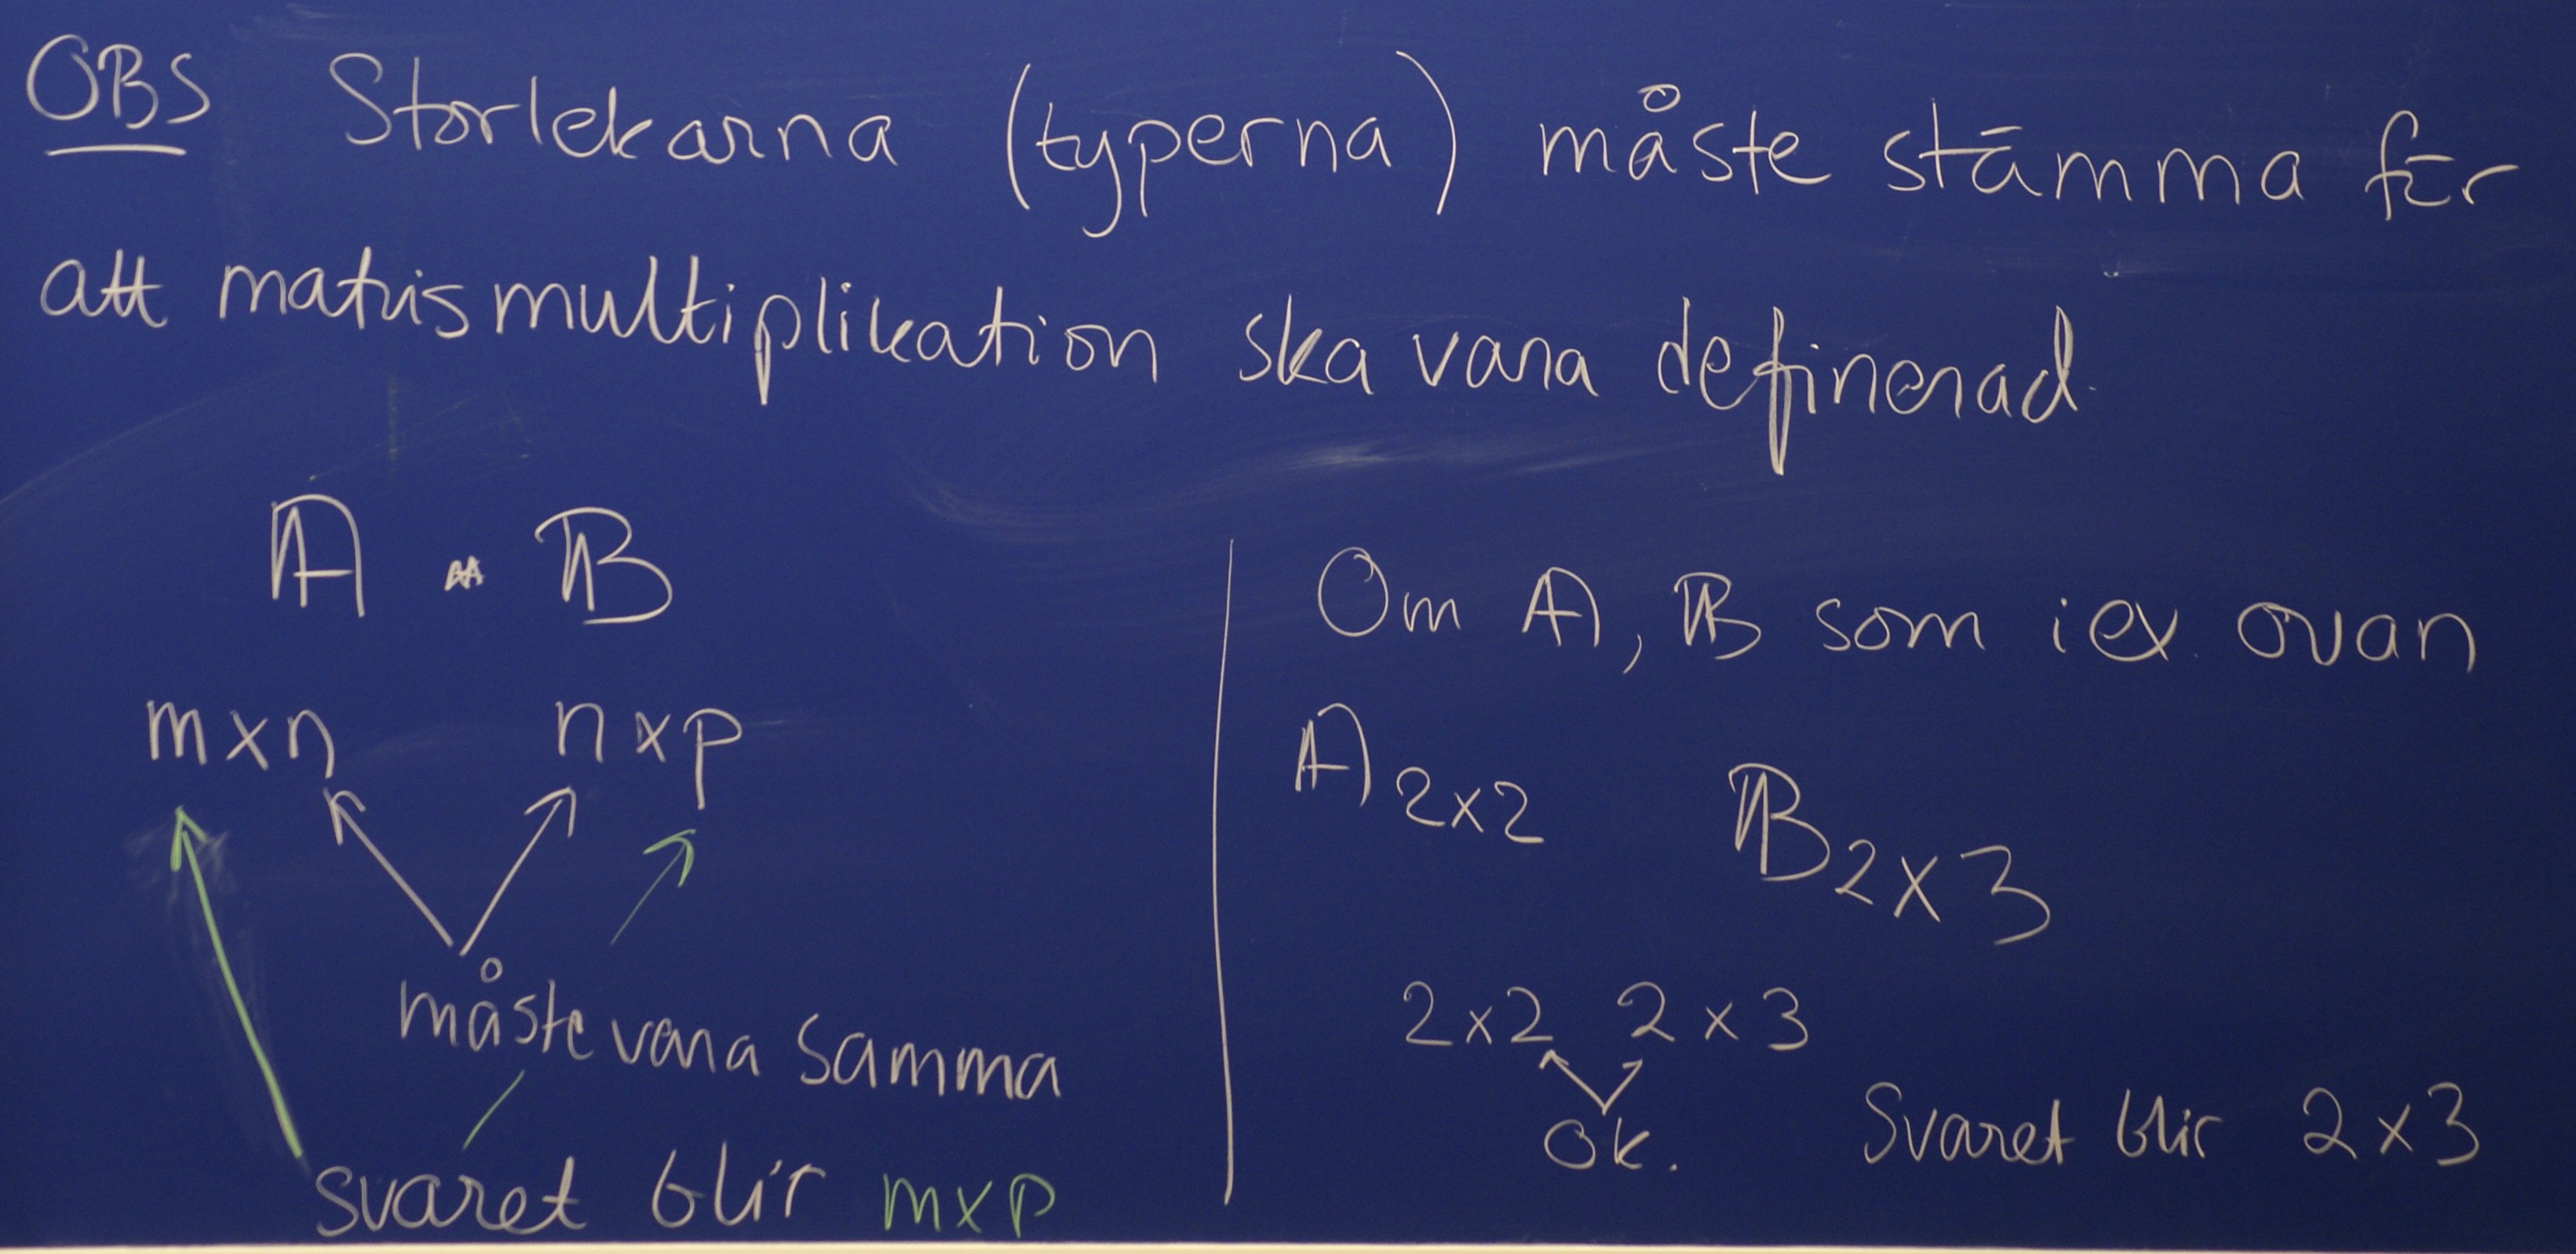 OBS Storlekarna (typerna) måste stämma för
att matrismultiplikation ska vara definerad.
A · B
m×n n×p
måste vara samma
svaret blir m×p
Om A, B som i ex. ovan
A 2×2 B 2×3
2×2 2×3
ok.
Svaret blir 2×3